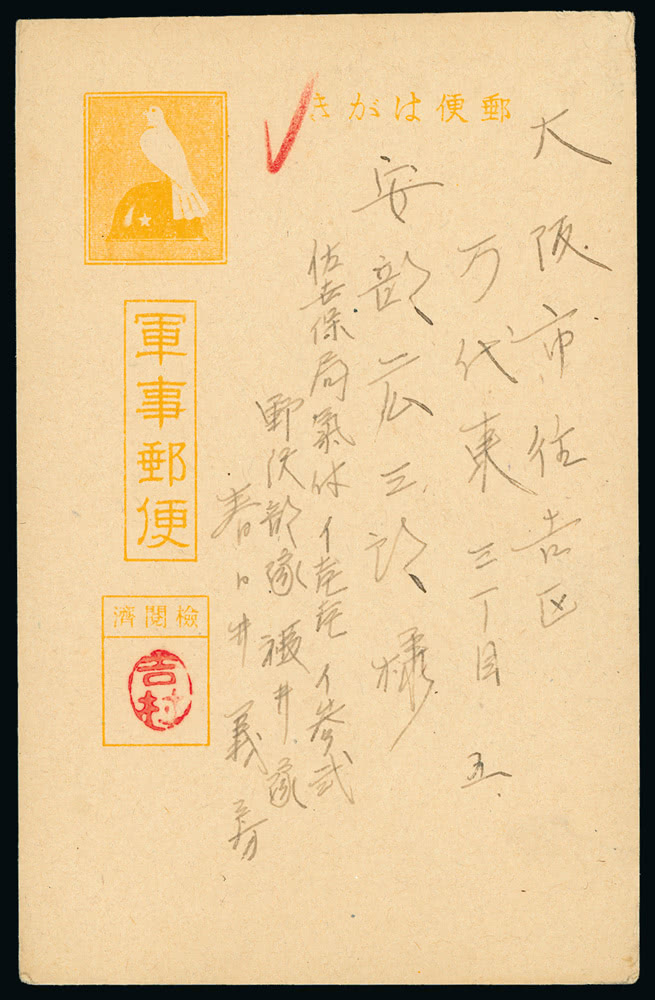 郵便はがき
大阪市住吉区
万代東三丁目 五
安部広三郎様
佐世保局気付イ壱壱イ参弐
野沢部隊 福井隊
春日井義
軍事郵便
検閲済
吉村